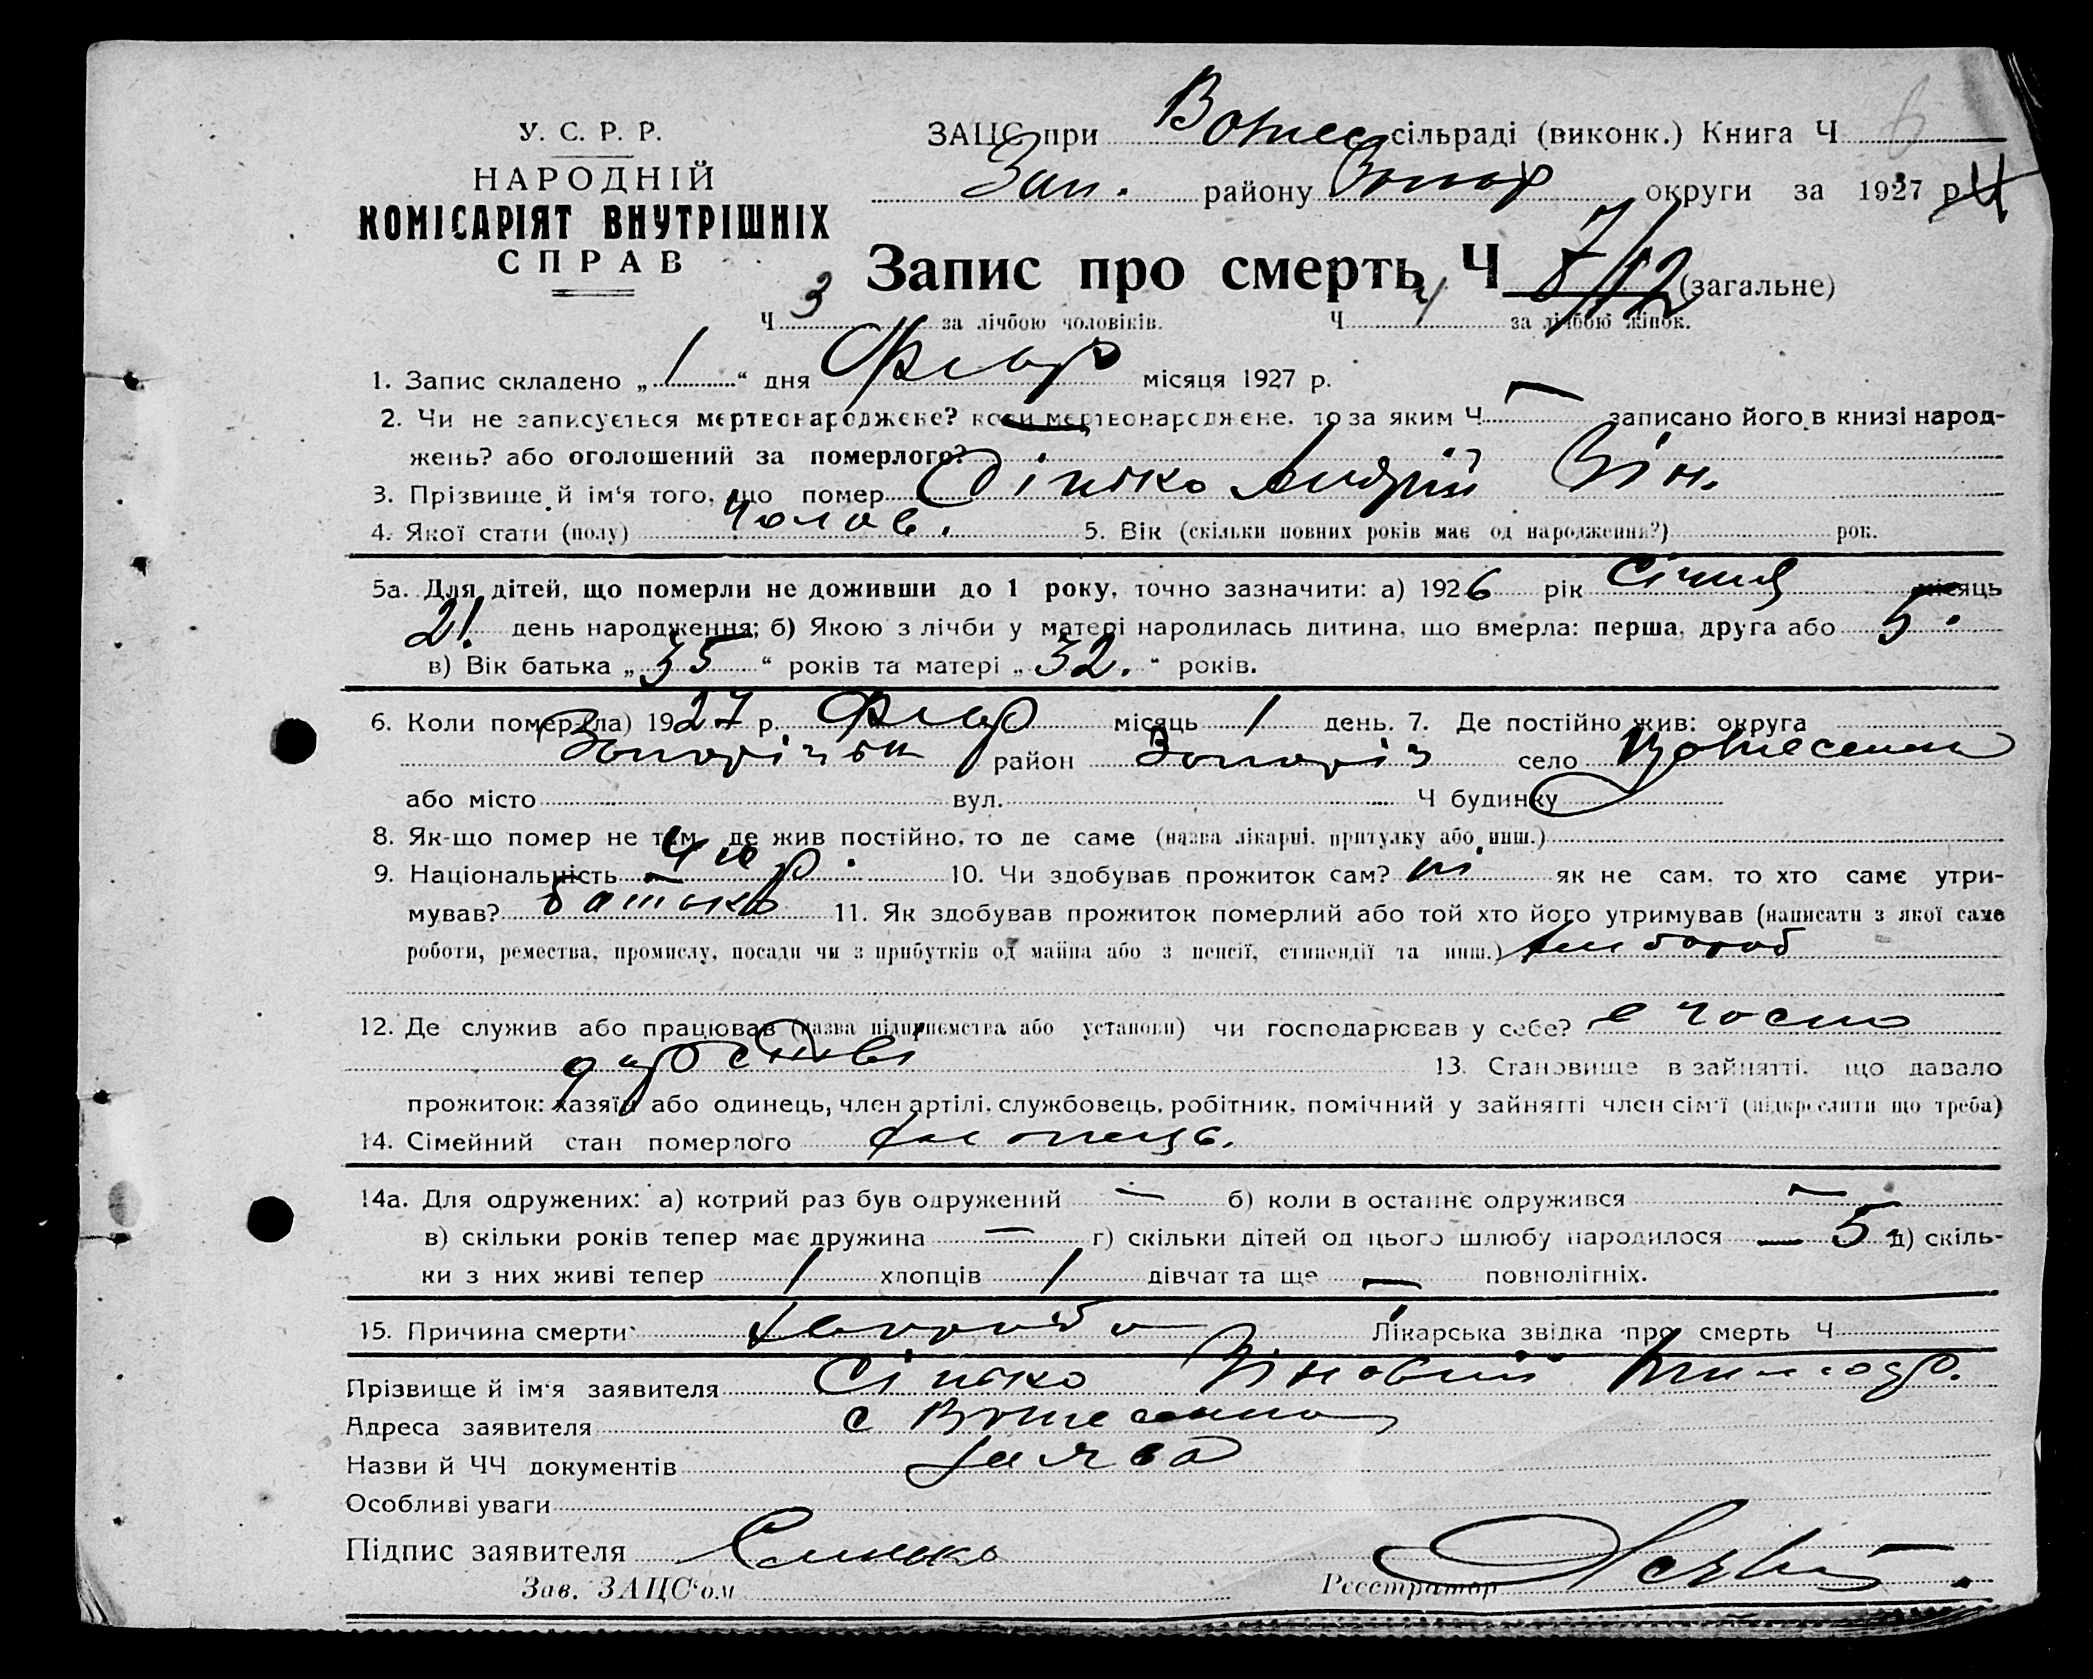 У. С. Р. Р.
НАРОДНІЙ
КОМІСАРІЯТ ВНУТРІШНІХ
СПРАВ
ЗАЦС при сільраді (виконк.) Книга Ч 6
Зап. району округи за 1927 р.
Запис про смерть Ч 7/12 (загальне)
Ч 3 за лічбою чоловіків. Ч 4 за лічбою жінок.
1. Запис складено „ 1 “ дня місяця 1927 р.
2. Чи не записується мертвонароджене? коли мертвонароджене, то за яким Ч — записано його в книзі народ-
жень? або оголошений за померлого?
3. Прізвище й ім'я того, що помер Сінько Андрій Зін.
4. Якої стати (полу) Чолов. 5. Вік (скільки повних років має од народження?) рок.
5а. Для дітей, що померли не доживши до 1 року, точно зазначити: а) 1926 рік Січня місяць
21 день народження; б) Якою з лічби у матері народилась дитина, що вмерла: перша, друга або 5.
в) Вік батька „ 35 “ років та матері „ 32. “ років.
6. Коли помер (ла) 1927 р. місяць 1 день. 7. Де постійно жив: округа
район село
або місто вул. Ч будинку
8. Як-що помер не там, де жив постійно, то де саме (назва лікарні, притулку або инш.)
9. Національність Укр. 10. Чи здобував прожиток сам? ні як не сам, то хто саме утри-
мував? батько 11. Як здобував прожиток померлий або той хто його утримував (написати з якої саме
роботи, ремества, промислу, посади чи з прибутків од майна або з пенсії, стипендії та инш.) хлібороб
12. Де служив або працював (назва підприємства або установи) чи господарював у себе?
13. Становище в зайнятті, що давало
прожиток: хазяїн або одинець, член артілі, службовець, робітник, помічний у зайнятті член сім'ї (підкреслити що треба)
14. Сімейний стан померлого хлопець.
14а. Для одружених: а) котрий раз був одружений — б) коли в останнє одружився —
в) скільки років тепер має дружина — г) скільки дітей од цього шлюбу народилося — 5 д) скіль-
ки з них живі тепер 1 хлопців 1 дівчат та ще — повнолітніх.
15. Причина смерти Хвороба Лікарська звідка про смерть Ч
Прізвище й ім'я заявителя Сінько Зіновій
Адреса заявителя с Вознесенка
Назви й ЧЧ документів заява
Особливі уваги
Підпис заявителя Синько
Зав. ЗАЦС'ом Реєстратор